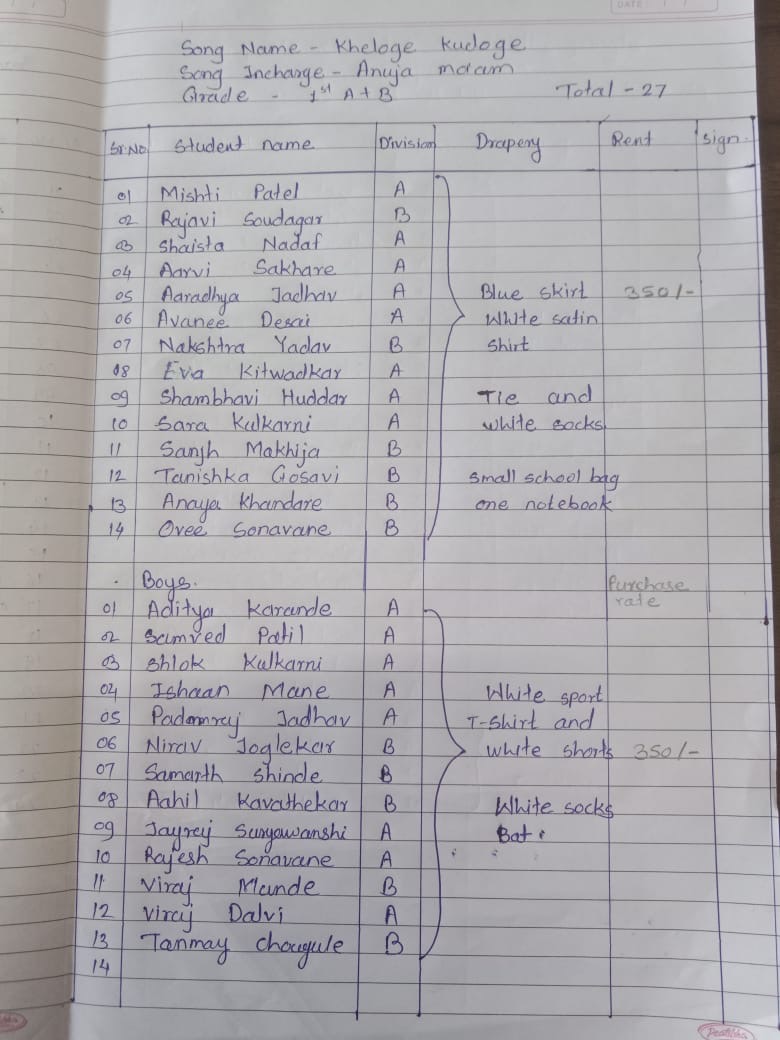 DATE: / /
Song Name - Kheloge Kudoge
Song Incharge - Anuja maam
Grade - 1st A+B Total - 27
Sr.No Student name Division Drapery Rent sign.
01 Mishti Patel A
02 Rajavi Soudagar B
03 Shaista Nadaf A
04 Aarvi Sakhare A
05 Aaradhya Jadhav A Blue skirt 350/-
06 Avanee Desai A White satin
07 Nakshtra Yadav B shirt
08 Eva Kitwadkar A
09 Shambhavi Huddar A Tie and
10 Sara Kulkarni A white socks
11 Sanjh Makhija B
12 Tanishka Gosavi B small school bag
13 Anaya Khandare B one notebook
14 Ovee Sonavane B
Boys. Purchase
01 Aditya Karande A rate
02 Samved Patil A
03 Shlok Kulkarni A
04 Ishaan Mane A White sport
05 Padamraj Jadhav A T-shirt and
06 Nirav Joglekar B white shorts 350/-
07 Samarth Shinde B
08 Aahil Kavathekar B White socks
09 Jayraj Suryawanshi A Bat.
10 Rajesh Sonavane A
11 Viraj Mande B
12 Viraj Dalvi A
13 Tanmay chougule B
14
Pratibha